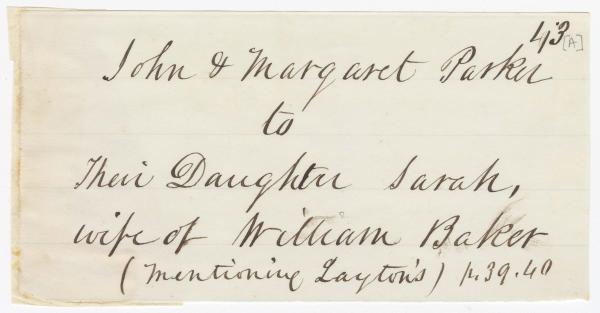 43
[A]
John & Margaret Parker
to
Their Daughter Sarah,
wife of William Baker
(Mentioning Layton's) p. 39.40